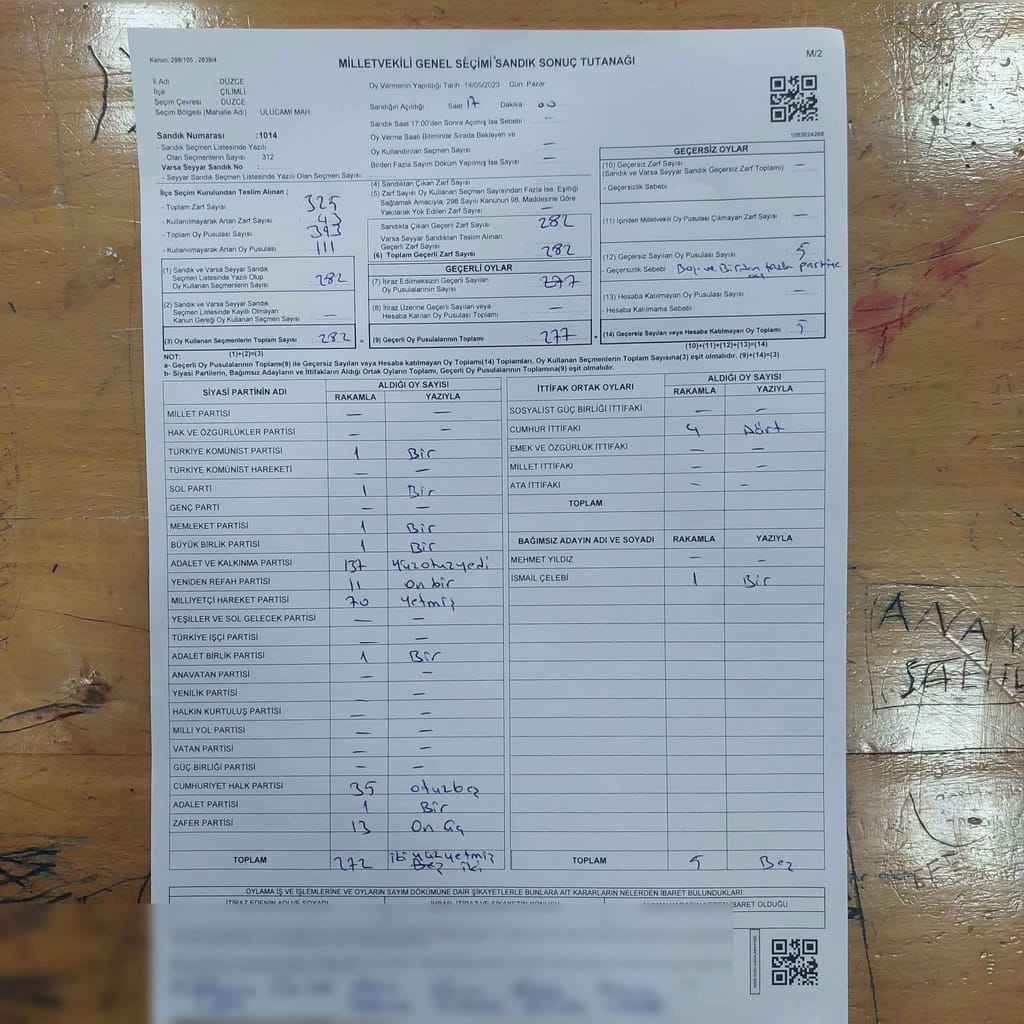 Kanun, 298/105 ; 2839/4
M/2
MİLLETVEKİLİ GENEL SEÇİMİ SANDIK SONUÇ TUTANAĞI
İl Adı DÜZCE
İlçe ÇİLİMLİ
Seçim Çevresi DÜZCE
Seçim Bölgesi (Mahalle Adı) ULUCAMİ MAH
Sandık Numarası :1014
- Sandık Seçmen Listesinde Yazılı
Olan Seçmenlerin Sayısı 312
Varsa Seyyar Sandık No :
- Seyyar Sandık Seçmen Listesinde Yazılı Olan Seçmen Sayısı
Oy Vermenin Yapıldığı Tarih 14/05/2023 Gün Pazar
Sandığın Açıldığı Saat 17 Dakika 00
Sandık Saat 17.00'den Sonra Açılmış İse Sebebi —
Oy Verme Saati Bitiminde Sırada Bekleyen ve
Oy Kullandırılan Seçmen Sayısı —
Birden Fazla Sayım Döküm Yapılmış İse Sayısı —
1083624268
İlçe Seçim Kurulundan Teslim Alınan ;
- Toplam Zarf Sayısı 325
- Kullanılmayarak Artan Zarf Sayısı 43
- Toplam Oy Pusulası Sayısı 393
- Kullanılmayarak Artan Oy Pusulası 111
(1) Sandık ve Varsa Seyyar Sandık
Seçmen Listesinde Yazılı Olup
Oy Kullanan Seçmenlerin Sayısı 282
(2) Sandık ve Varsa Seyyar Sandık
Seçmen Listesinde Kayıtlı Olmayan
Kanun Gereği Oy Kullanan Seçmen Sayısı —
(3) Oy Kullanan Seçmenlerin Toplam Sayısı 282
(1)+(2)=(3)
(4) Sandıktan Çıkan Zarf Sayısı
(5) Zarf Sayısı Oy Kullanan Seçmen Sayısından Fazla İse, Eşitliği
Sağlamak Amacıyla, 298 Sayılı Kanunun 98. Maddesine Göre
Yakılarak Yok Edilen Zarf Sayısı —
Sandıkta Çıkan Geçerli Zarf Sayısı 282
Varsa Seyyar Sandıktan Teslim Alınan
Geçerli Zarf Sayısı
(6) Toplam Geçerli Zarf Sayısı 282
GEÇERLİ OYLAR
(7) İtiraz Edilmeksizin Geçerli Sayılan
Oy Pusulalarının Sayısı 277
(8) İtiraz Üzerine Geçerli Sayılan veya
Hesaba Katılan Oy Pusulası Toplamı —
(9) Geçerli Oy Pusulalarının Toplamı 277
GEÇERSİZ OYLAR
(10) Geçersiz Zarf Sayısı —
(Sandık ve Varsa Seyyar Sandık Geçersiz Zarf Toplamı)
- Geçersizlik Sebebi
(11) İçinden Milletvekili Oy Pusulası Çıkmayan Zarf Sayısı —
(12) Geçersiz Sayılan Oy Pusulası Sayısı 5
- Geçersizlik Sebebi Boş ve Birden fazla partiye
(13) Hesaba Katılmayan Oy Pusulası Sayısı —
- Hesaba Katılmama Sebebi
(14) Geçersiz Sayılan veya Hesaba Katılmayan Oy Toplamı 5
(10)+(11)+(12)+(13)=(14)
NOT:
a- Geçerli Oy Pusulalarının Toplamı(9) ile Geçersiz Sayılan veya Hesaba katılmayan Oy Toplamı(14) Toplamları, Oy Kullanan Seçmenlerin Toplam Sayısına(3) eşit olmalıdır. (9)+(14)=(3)
b- Siyasi Partilerin, Bağımsız Adayların ve İttifakların Aldığı Ortak Oyların Toplamı, Geçerli Oy Pusulalarının Toplamına(9) eşit olmalıdır.
SİYASİ PARTİNİN ADI ALDIĞI OY SAYISI
RAKAMLA YAZIYLA
MİLLET PARTİSİ — —
HAK VE ÖZGÜRLÜKLER PARTİSİ — —
TÜRKİYE KOMÜNİST PARTİSİ 1 Bir
TÜRKİYE KOMÜNİST HAREKETİ — —
SOL PARTİ 1 Bir
GENÇ PARTİ — —
MEMLEKET PARTİSİ 1 Bir
BÜYÜK BİRLİK PARTİSİ 1 Bir
ADALET VE KALKINMA PARTİSİ 137 Yüzotuzyedi
YENİDEN REFAH PARTİSİ 11 on bir
MİLLİYETÇİ HAREKET PARTİSİ 70 yetmiş
YEŞİLLER VE SOL GELECEK PARTİSİ — —
TÜRKİYE İŞÇİ PARTİSİ — —
ADALET BİRLİK PARTİSİ 1 Bir
ANAVATAN PARTİSİ — —
YENİLİK PARTİSİ —
HALKIN KURTULUŞ PARTİSİ — —
MİLLİ YOL PARTİSİ — —
VATAN PARTİSİ — —
GÜÇ BİRLİĞİ PARTİSİ — —
CUMHURİYET HALK PARTİSİ 35 otuzbeş
ADALET PARTİSİ 1 Bir
ZAFER PARTİSİ 13 On üç
TOPLAM 272 iki yüz yetmiş
iki
İTTİFAK ORTAK OYLARI ALDIĞI OY SAYISI
RAKAMLA YAZIYLA
SOSYALİST GÜÇ BİRLİĞİ İTTİFAKI — —
CUMHUR İTTİFAKI 4 Dört
EMEK VE ÖZGÜRLÜK İTTİFAKI — —
MİLLET İTTİFAKI — —
ATA İTTİFAKI — —
TOPLAM
BAĞIMSIZ ADAYIN ADI VE SOYADI RAKAMLA YAZIYLA
MEHMET YILDIZ — —
İSMAİL ÇELEBİ 1 Bir
TOPLAM 5 Beş
OYLAMA İŞ VE İŞLEMLERİNE VE OYLARIN SAYIM DÖKÜMÜNE DAİR ŞİKAYETLERLE BUNLARA AİT KARARLARIN NELERDEN İBARET BULUNDUKLARI